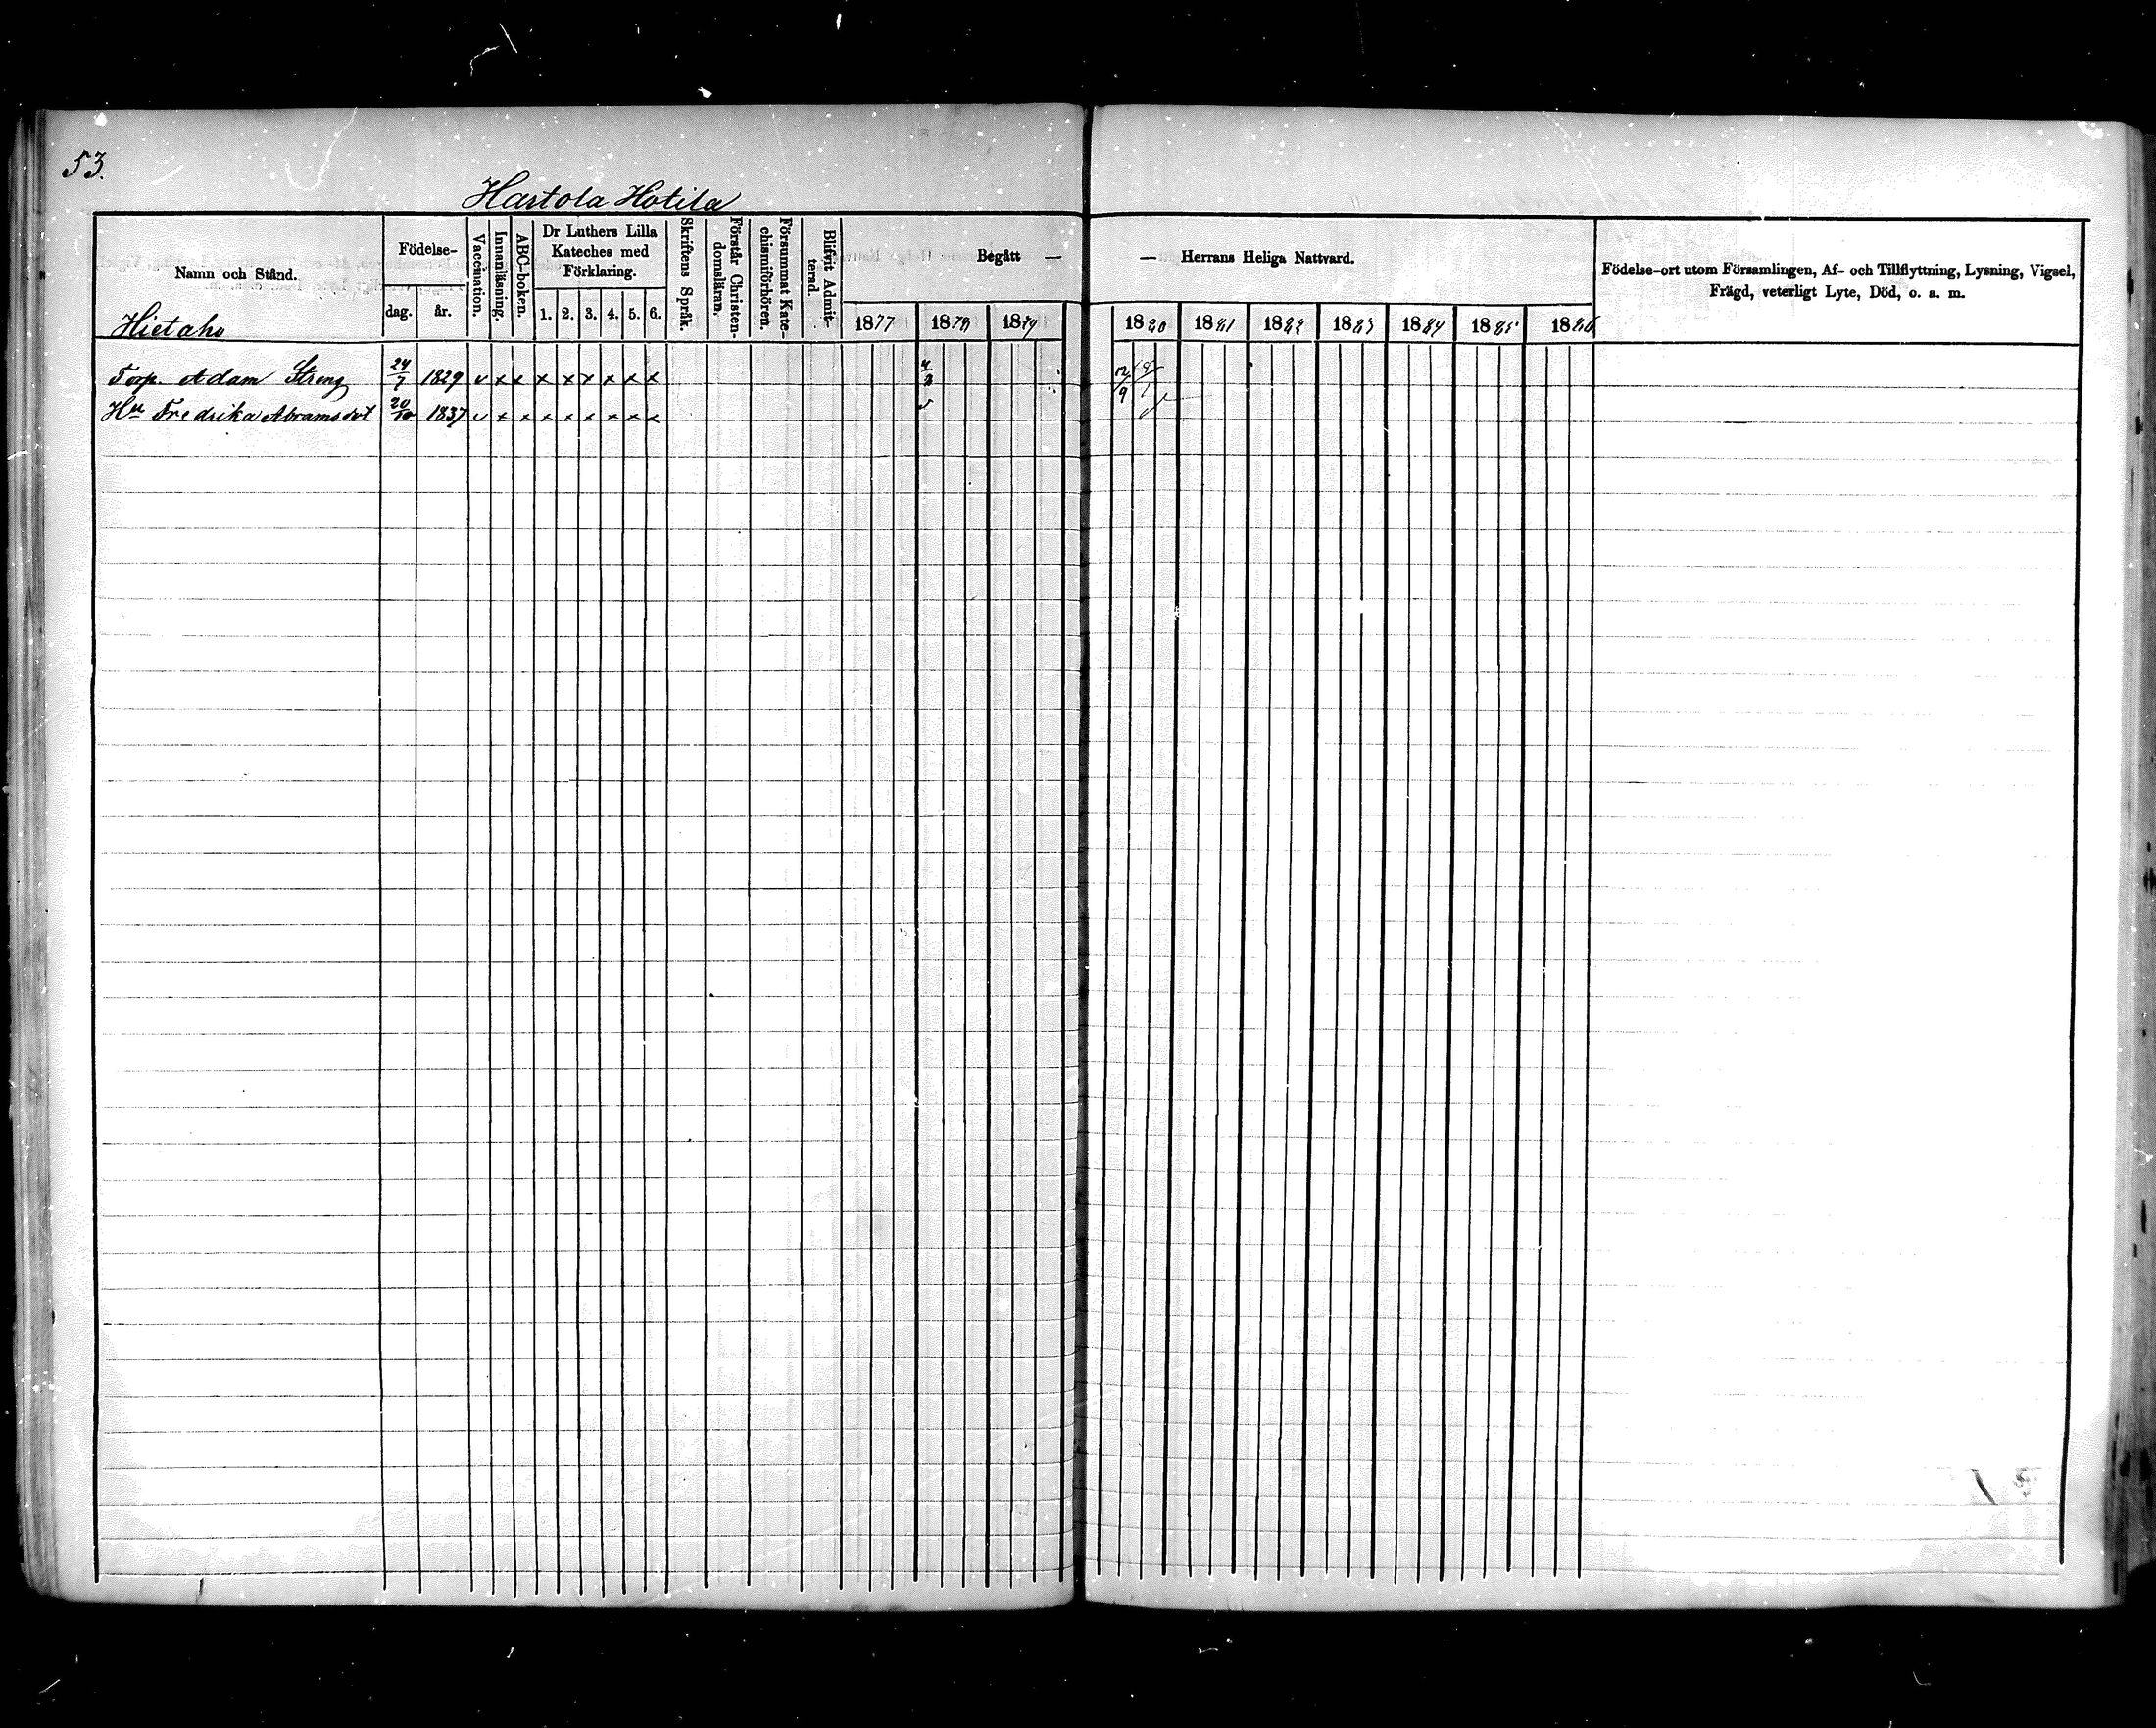 53.
Hartola Hotila
Namn och Stånd.
Födelse-
dag. år.
Vaccination.
Innanläsning.
ABC-boken.
Dr Luthers Lilla
Kateches med
Förklaring.
1. 2. 3. 4. 5. 6.
Skriftens Språk.
Förstår Christen-
domsläran.
Försummat Kate-
chismiförhören.
Blifvit Admit-
terad.
Begått — — Herrans Heliga Nattvard.
1877 1878 1879 1880 1881 1882 1883 1884 1885 1886
Födelse-ort utom Församlingen, Af- och Tillflyttning, Lysning, Vigsel,
Frägd, veterligt Lyte, Död, o. a. m.
Hietaho
Torp. Adam Streng 24/7 1829 v x x x x x x x x 12/9
Hu Fredrika Abramsdot 20/10 1837 v x x x x x x x x